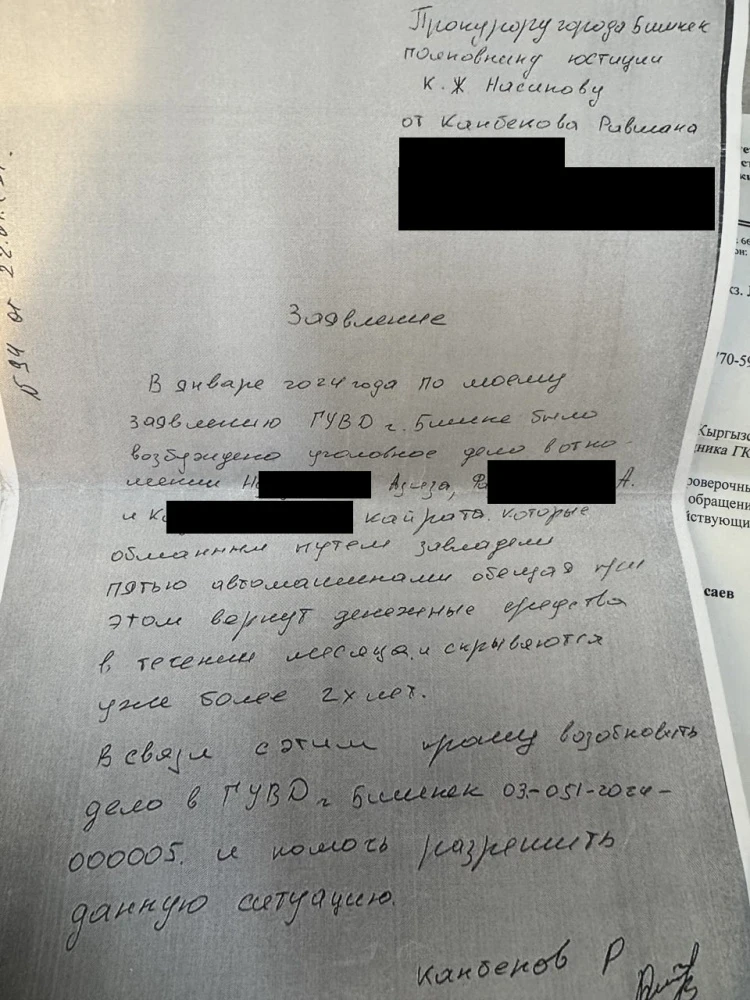 Прокурору города Бишкек
полковнику юстиции
К.Ж Насипову
от Канбекова Равшана
№ 94 от
Заявление
В январе 2024 года по моему
заявлению ГУВД г. Бишке было
возбуждено уголовное дело в отно-
шении Н Азиза, А.
и К Кайрата. которые
обманным путем завладели
пятью автомашинами обещая при
этом вернут денежные средства
в течении месяца. и скрываются
уже более 2х лет.
В связи с этим прошу возобновить
дело в ГУВД г Бишкек 03-051-2024-
000005. и помочь разрешить
данную ситуацию.
Канбеков Р
70-59
Кыргызс
ника ГК
роверочны
обращени
йствующи
саев